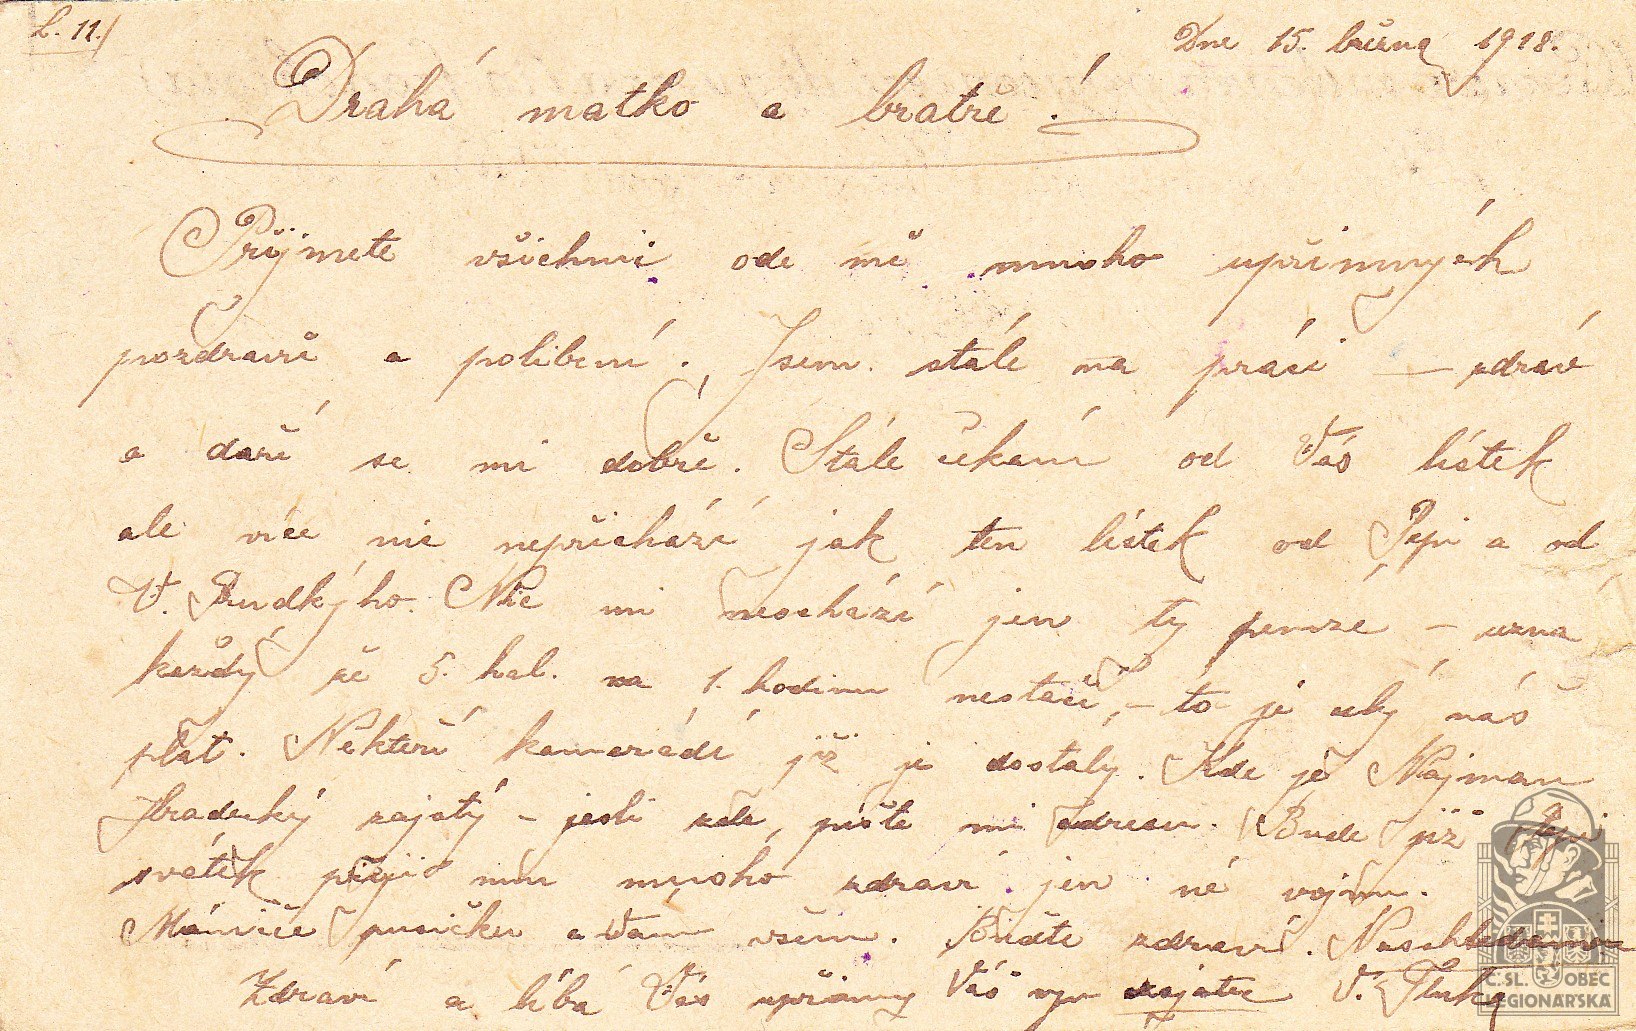 L. 11.)
Dne 15. března 1918.
Drahá matko a bratře!
Přijmete všichni ode mě mnoho upřímných
pozdravů a políbení. Jsem stále na práci — zdráv
a daří se mi dobře. Stále čekám od Vás lístek
ale více nic nepřichází jak ten lístek od Pepi a od
V. Prudkýho. Nic mi neschází jen ty peníze — uzná
každý že 5. hal. na 1. hodinu nestačí, — to je celý náš
plat. Někteří kamarádi již je dostaly. Kde je Najman
Hradecký zajatý — jesli zde, pište mi adresu. Bude již Pepi
svátek přeji mu mnoho zdraví jen né vojnu.
Mánviče pusičku a Vám všem. Buďte zdraví. Naschledanou
Zdraví a líbá Vás upřímný Váš syn zajatec V.
Č.SL. OBEC
LEGIONÁŘSKÁ